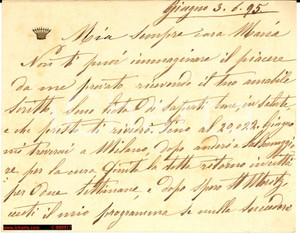 Giugno 3. 6. 95
Mia sempre cara Maria
Non ti puoi immaginare il piacere
da me provato, ricevendo il tuo amabile
scritto. Sono lieta di saperti bene, in salute
e che presto ti rivedrò. Fino al 20, o 22 Giugno
mi troverai a Milano, dopo andrò a
per la cura. Finita la tutta retorno in città
per due settimane, e dopo spero St Moritz,
eccoti il mio programma se nulla succedere